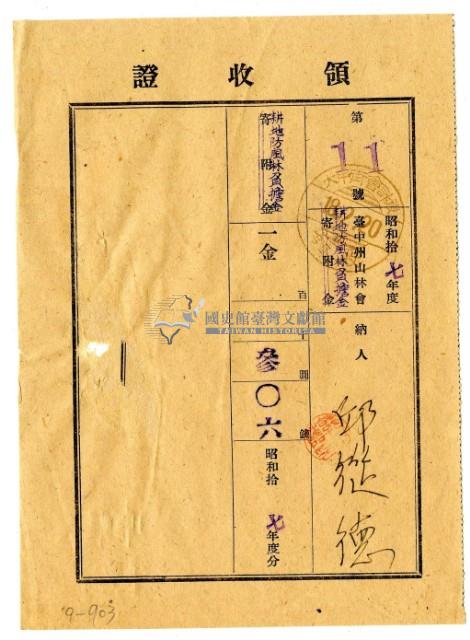 領收證
第11號
昭和拾七年度
臺中州山林會
寄附金
耕地防風林負擔金
納人
邱從德
寄附金
耕地防風林負擔金
一金
百
圓
參〇六
錢
昭和拾七年度分
國史館臺灣文獻館
TAIWAN HISTORICA
9-903